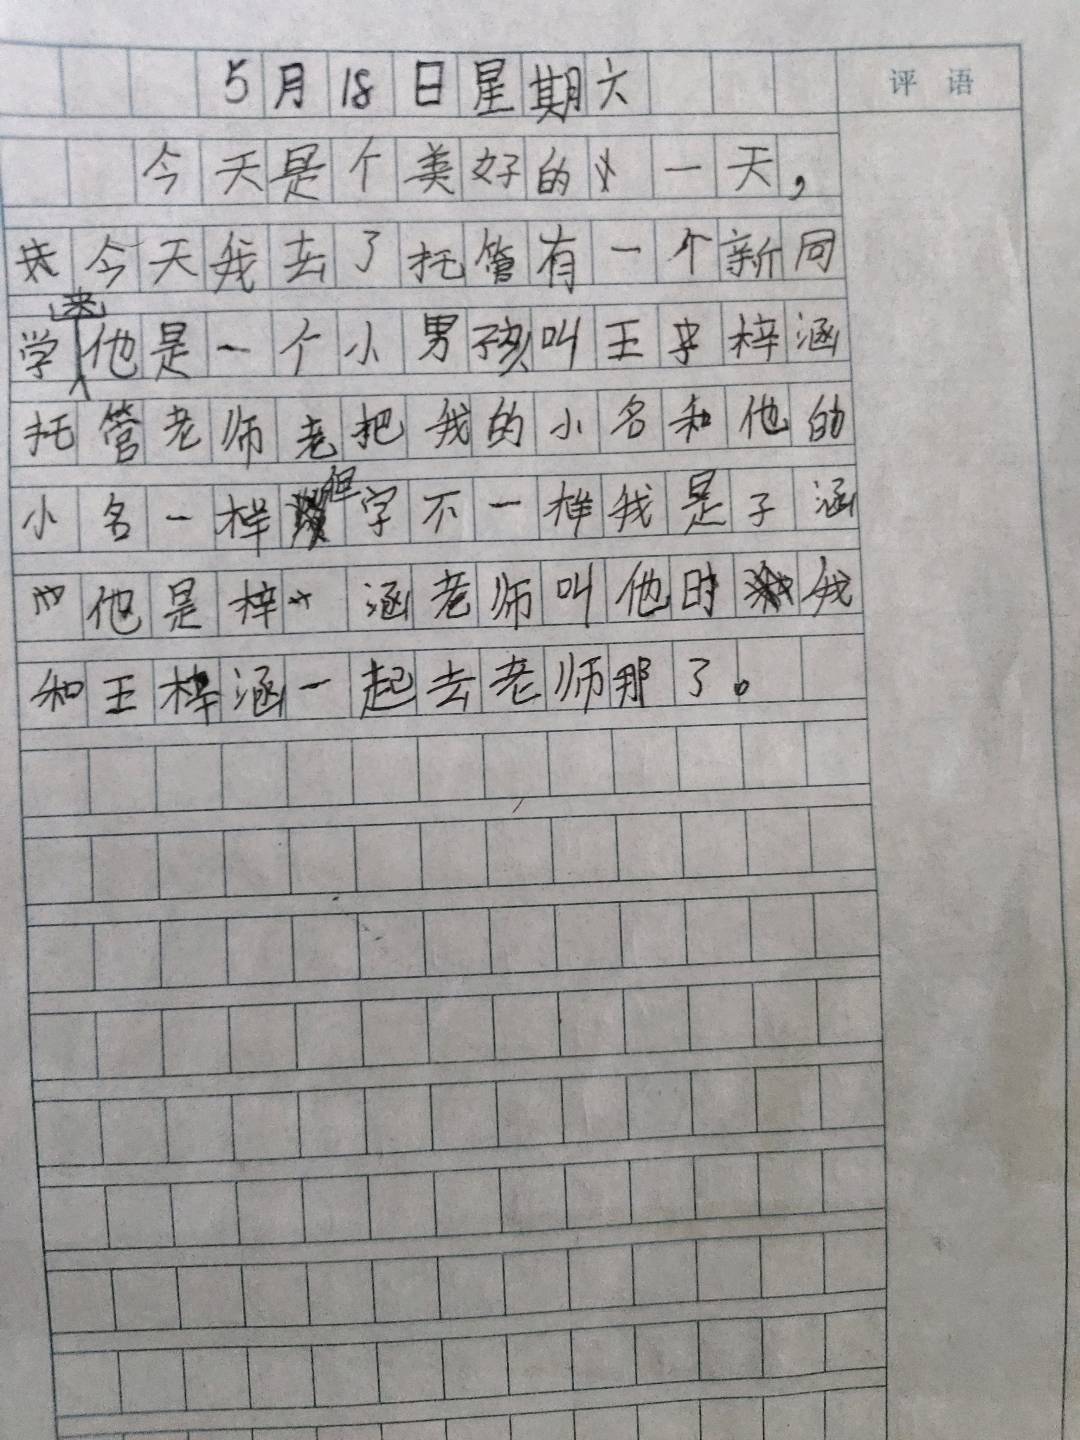 5月18日星期六
评语
今天是个美好的一天，
今天我去了托管有一个新同
学来他是一个小男孩叫王梓涵
托管老师老把我的小名和他的
小名一样但字不一样我是子涵
他是梓涵老师叫他时我
和王梓涵一起去老师那了。